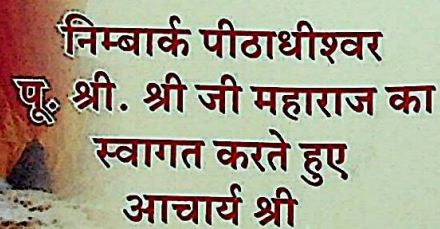 निम्बार्क पीठाधीश्वर
पू. श्री. श्री जी महाराज का
स्वागत करते हुए
आचार्य श्री